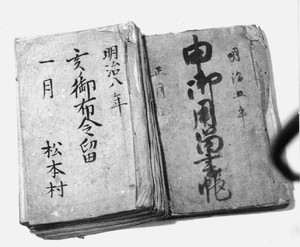 明治五年
申御用留書帳
正月
明治八年
亥御布令留
一月
松本村